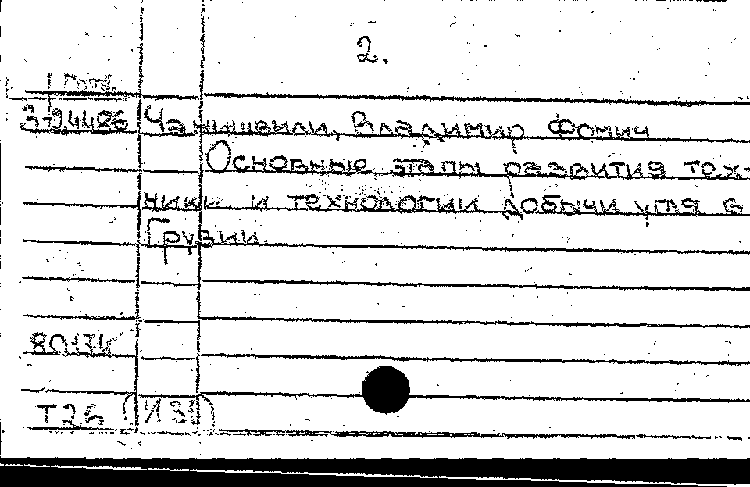 2.
3-94486 Чанишвили, Владимир Фомич
Основные этапы развития тех-
ники и технологии добычи угля в
Грузии.
Т2б (И3)